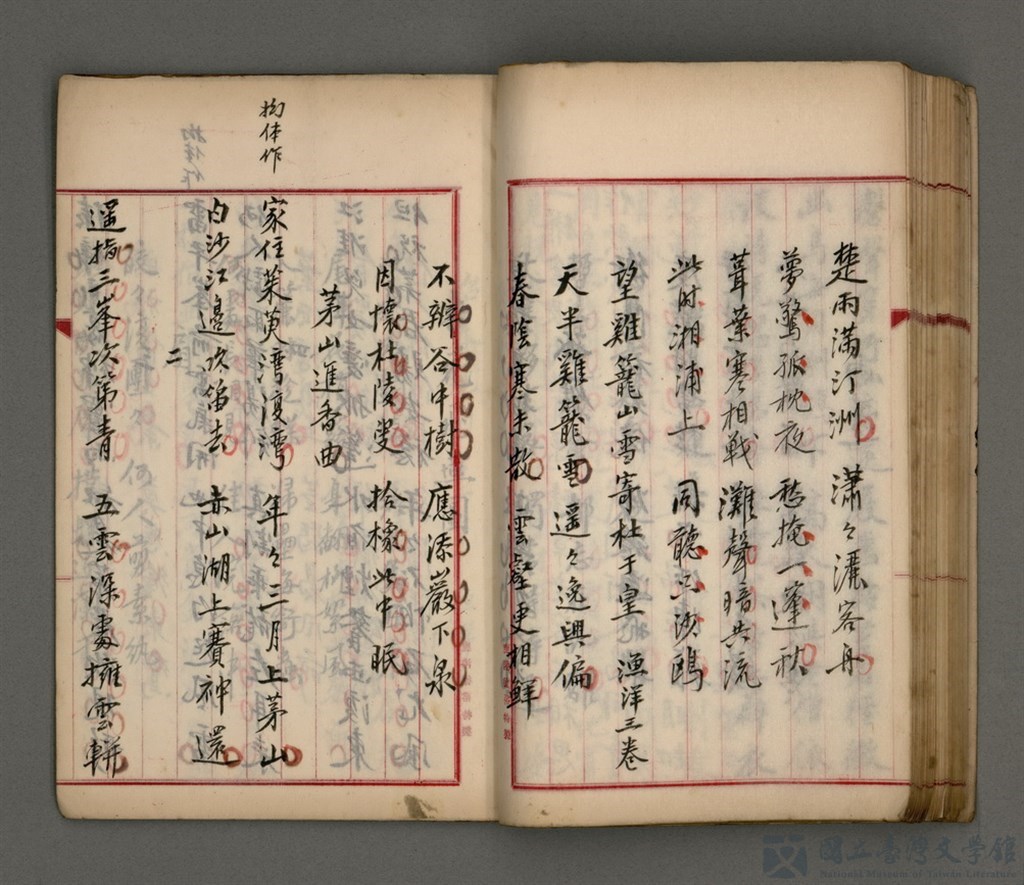 楚雨滿汀洲 瀟々灑客舟
夢驚孤枕夜 愁掩一篷秋
葭葉寒相戰 灘聲暗共流
此时湘浦上 同聽只沙鷗
望雞籠山雪寄杜于皇 漁洋三卷
天半雞籠雪 遥々逸興偏
春陰寒未散 雲壑更相鮮
不辨谷中樹 應添巖下泉
因懷杜陵叟 拾橡此中眠
茅山進香曲
拗体作
家住茱萸灣復灣 年々三月上茅山
白沙江邊吹笛去 赤山湖上賽神還
二
遥指三峯次第青 五雲深處擁雲軿
國立臺灣文學館
National Museum of Taiwan Literature